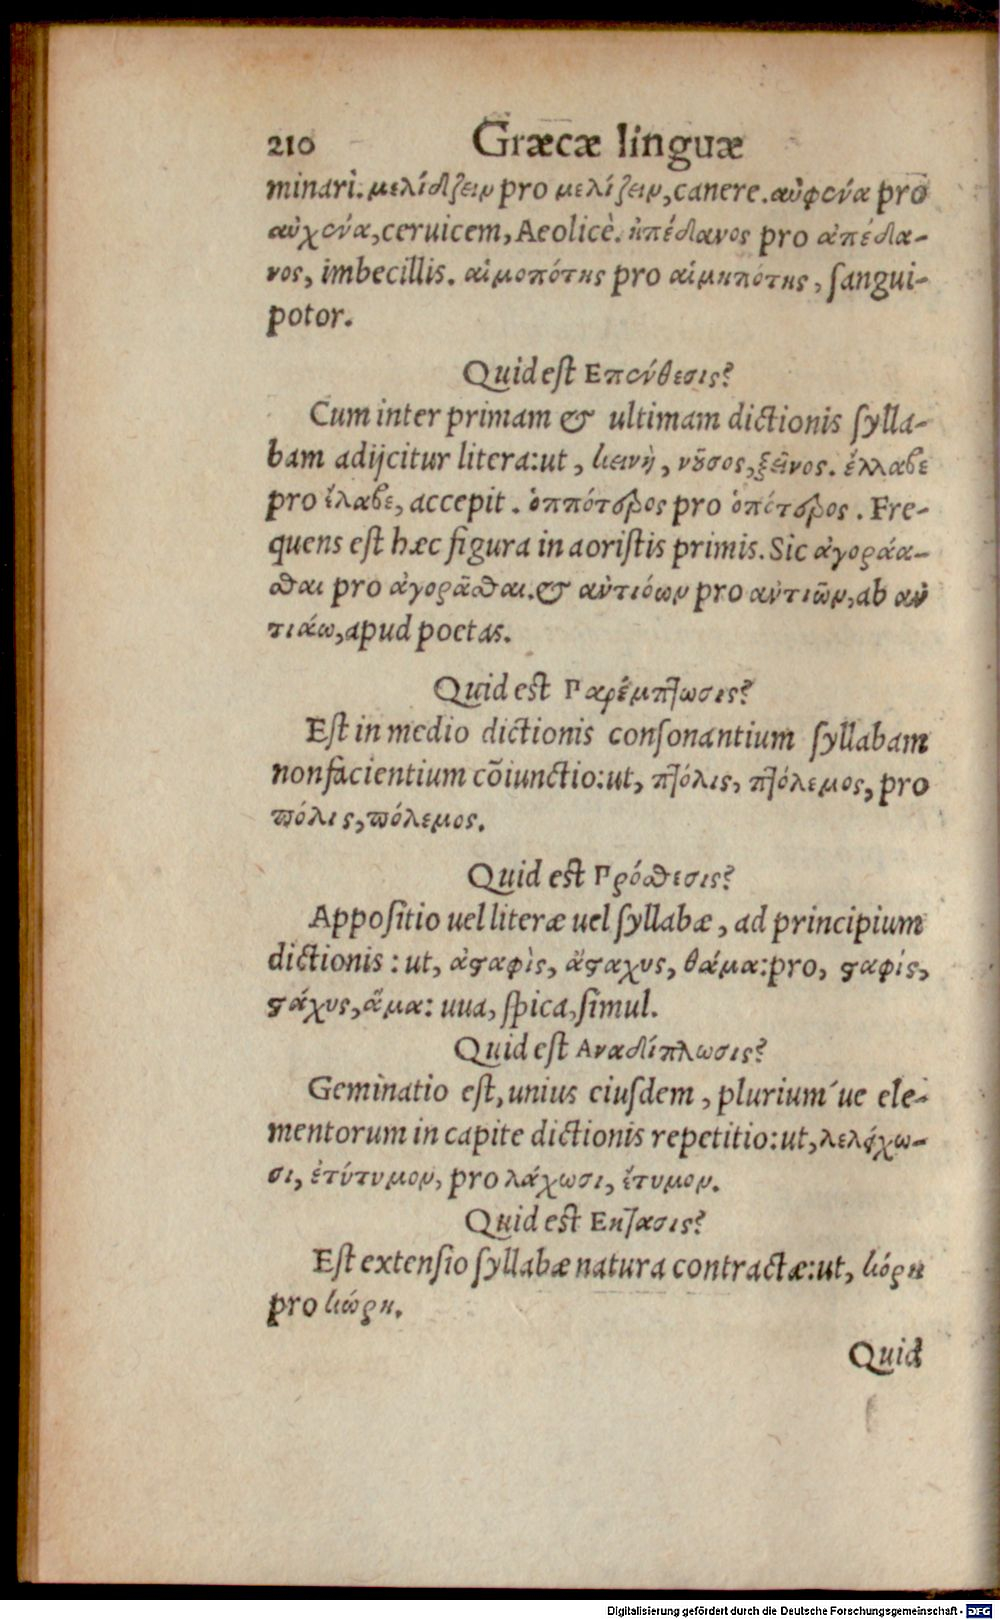 210 Græcæ linguæ
minari. μελίδζειν pro μελίζειν, canere. αὐφένα pro
αὐχένα, ceruicem, Aeolicè. ἠπέδανος pro ἀπέδα-
νος, imbecillis. αἱμοπότης pro αἱμηπότης, sangui-
potor.
Quid est Επένθεσις?
Cum inter primam & ultimam dictionis sylla-
bam adijcitur litera: ut, κεινὴ, νοῦσος, ξεῖνος. ἔλλαβε
pro ἔλαβε, accepit. ὁππότερος pro ὁπότερος. Fre-
quens est hæc figura in aoristis primis. Sic ἀγοράα-
σθαι pro ἀγορᾶσθαι. & ἀντιόων pro ἀντιῶν, ab ἀν
τιάω, apud poetas.
Quid est Παρέμπτωσις?
Est in medio dictionis consonantium syllabam
non facientium cõiunctio: ut, πτόλις, πτόλεμος, pro
πόλις, πόλεμος.
Quid est Πρόσθεσις?
Appositio uel literæ uel syllabæ, ad principium
dictionis: ut, ἀσταφὶς, ἄσταχυς, θάμα: pro, σταφίς,
στάχυς, ἅμα: uua, spica, simul.
Quid est Αναδίπλωσις?
Geminatio est, unius eiusdem, plurium´ue ele-
mentorum in capite dictionis repetitio: ut, λελάχω-
σι, ἐτύτυμον, pro λάχωσι, ἔτυμον.
Quid est Εκτασις?
Est extensio syllabæ natura contractæ: ut, κόρη
pro κώρη.
Quid
Digitalisierung gefördert durch die Deutsche Forschungsgemeinschaft - DFG